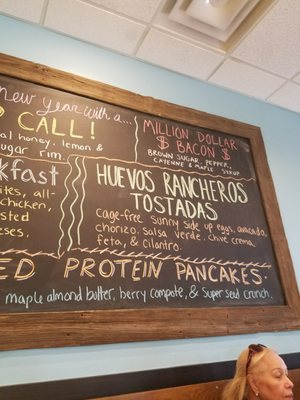 new year with a...
CALL!
honey, lemon &
sugar rim.
MILLION DOLLAR
$ BACON $
BROWN SUGAR, PEPPER,
CAYENNE & MAPLE SYRUP
HUEVOS RANCHEROS
TOSTADAS
cage-free sunny side up eggs, avocado,
chorizo, salsa verde, chive crema,
feta, & cilantro.
chicken,
PROTEIN PANCAKES
maple almond butter, berry compote, & super seed crunch